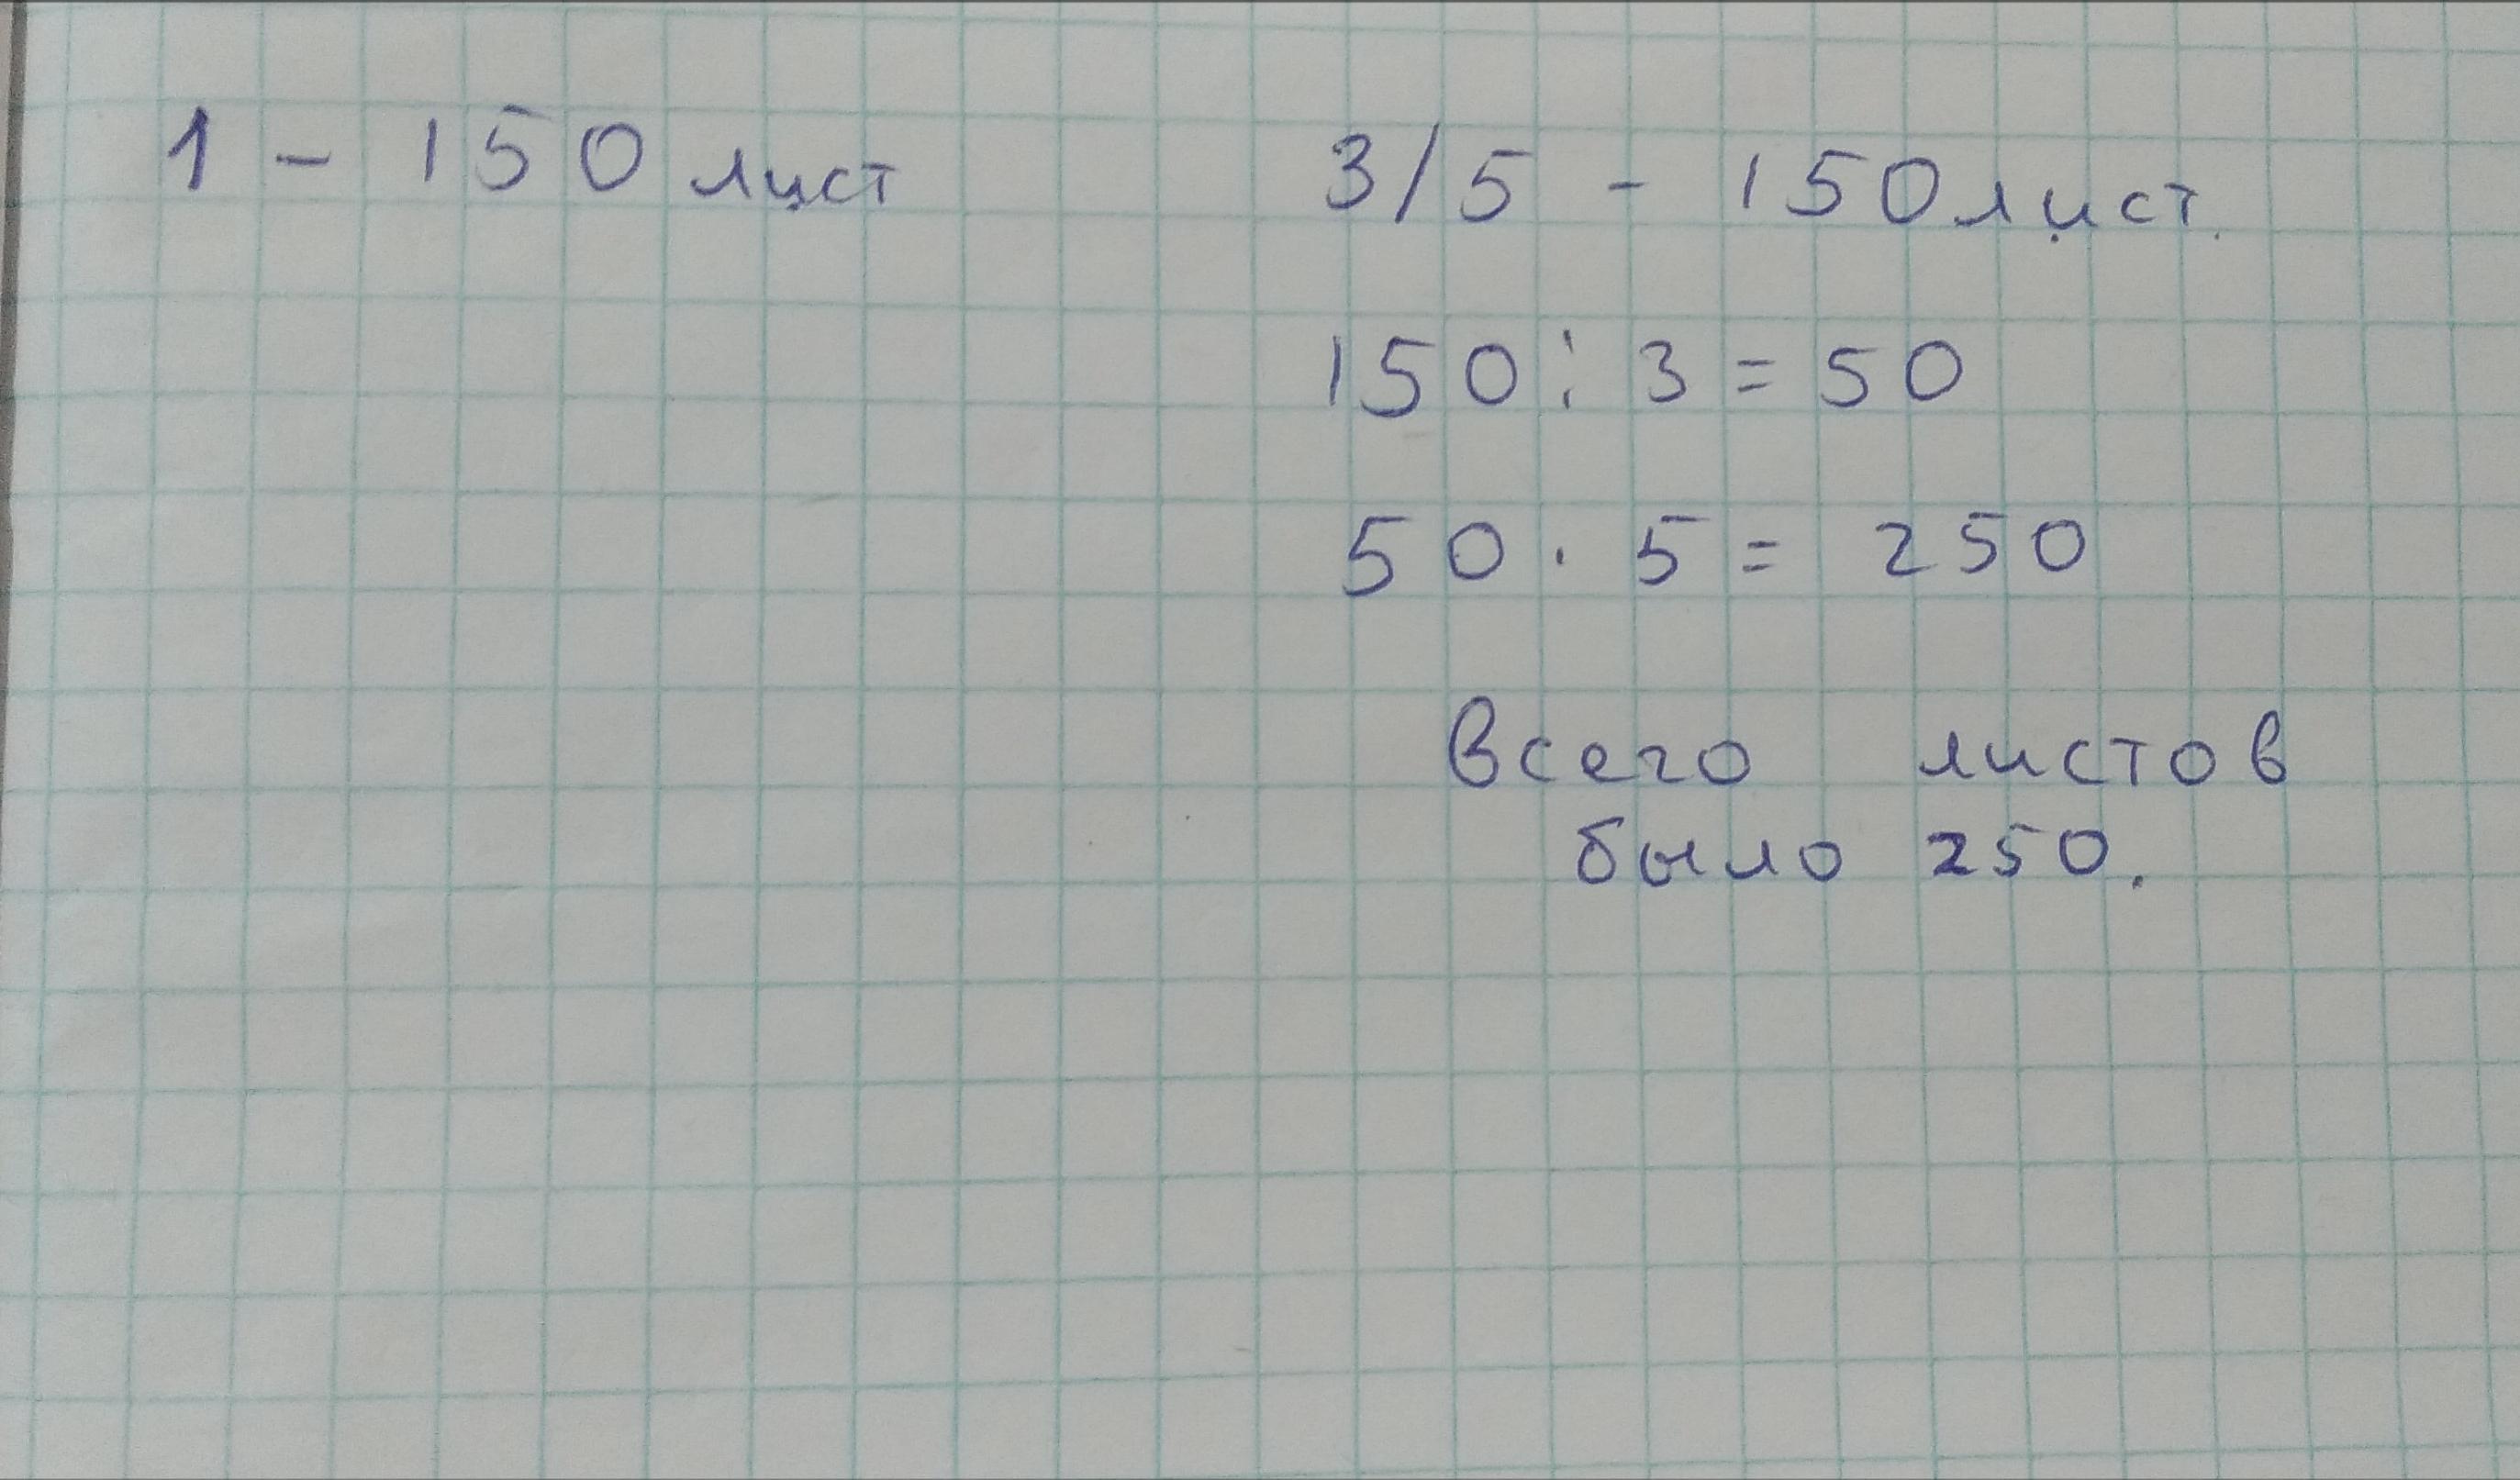 1 - 150 лист
3/5 - 150 лист.
150 : 3 = 50
50 · 5 = 250
Всего листов
было 250.